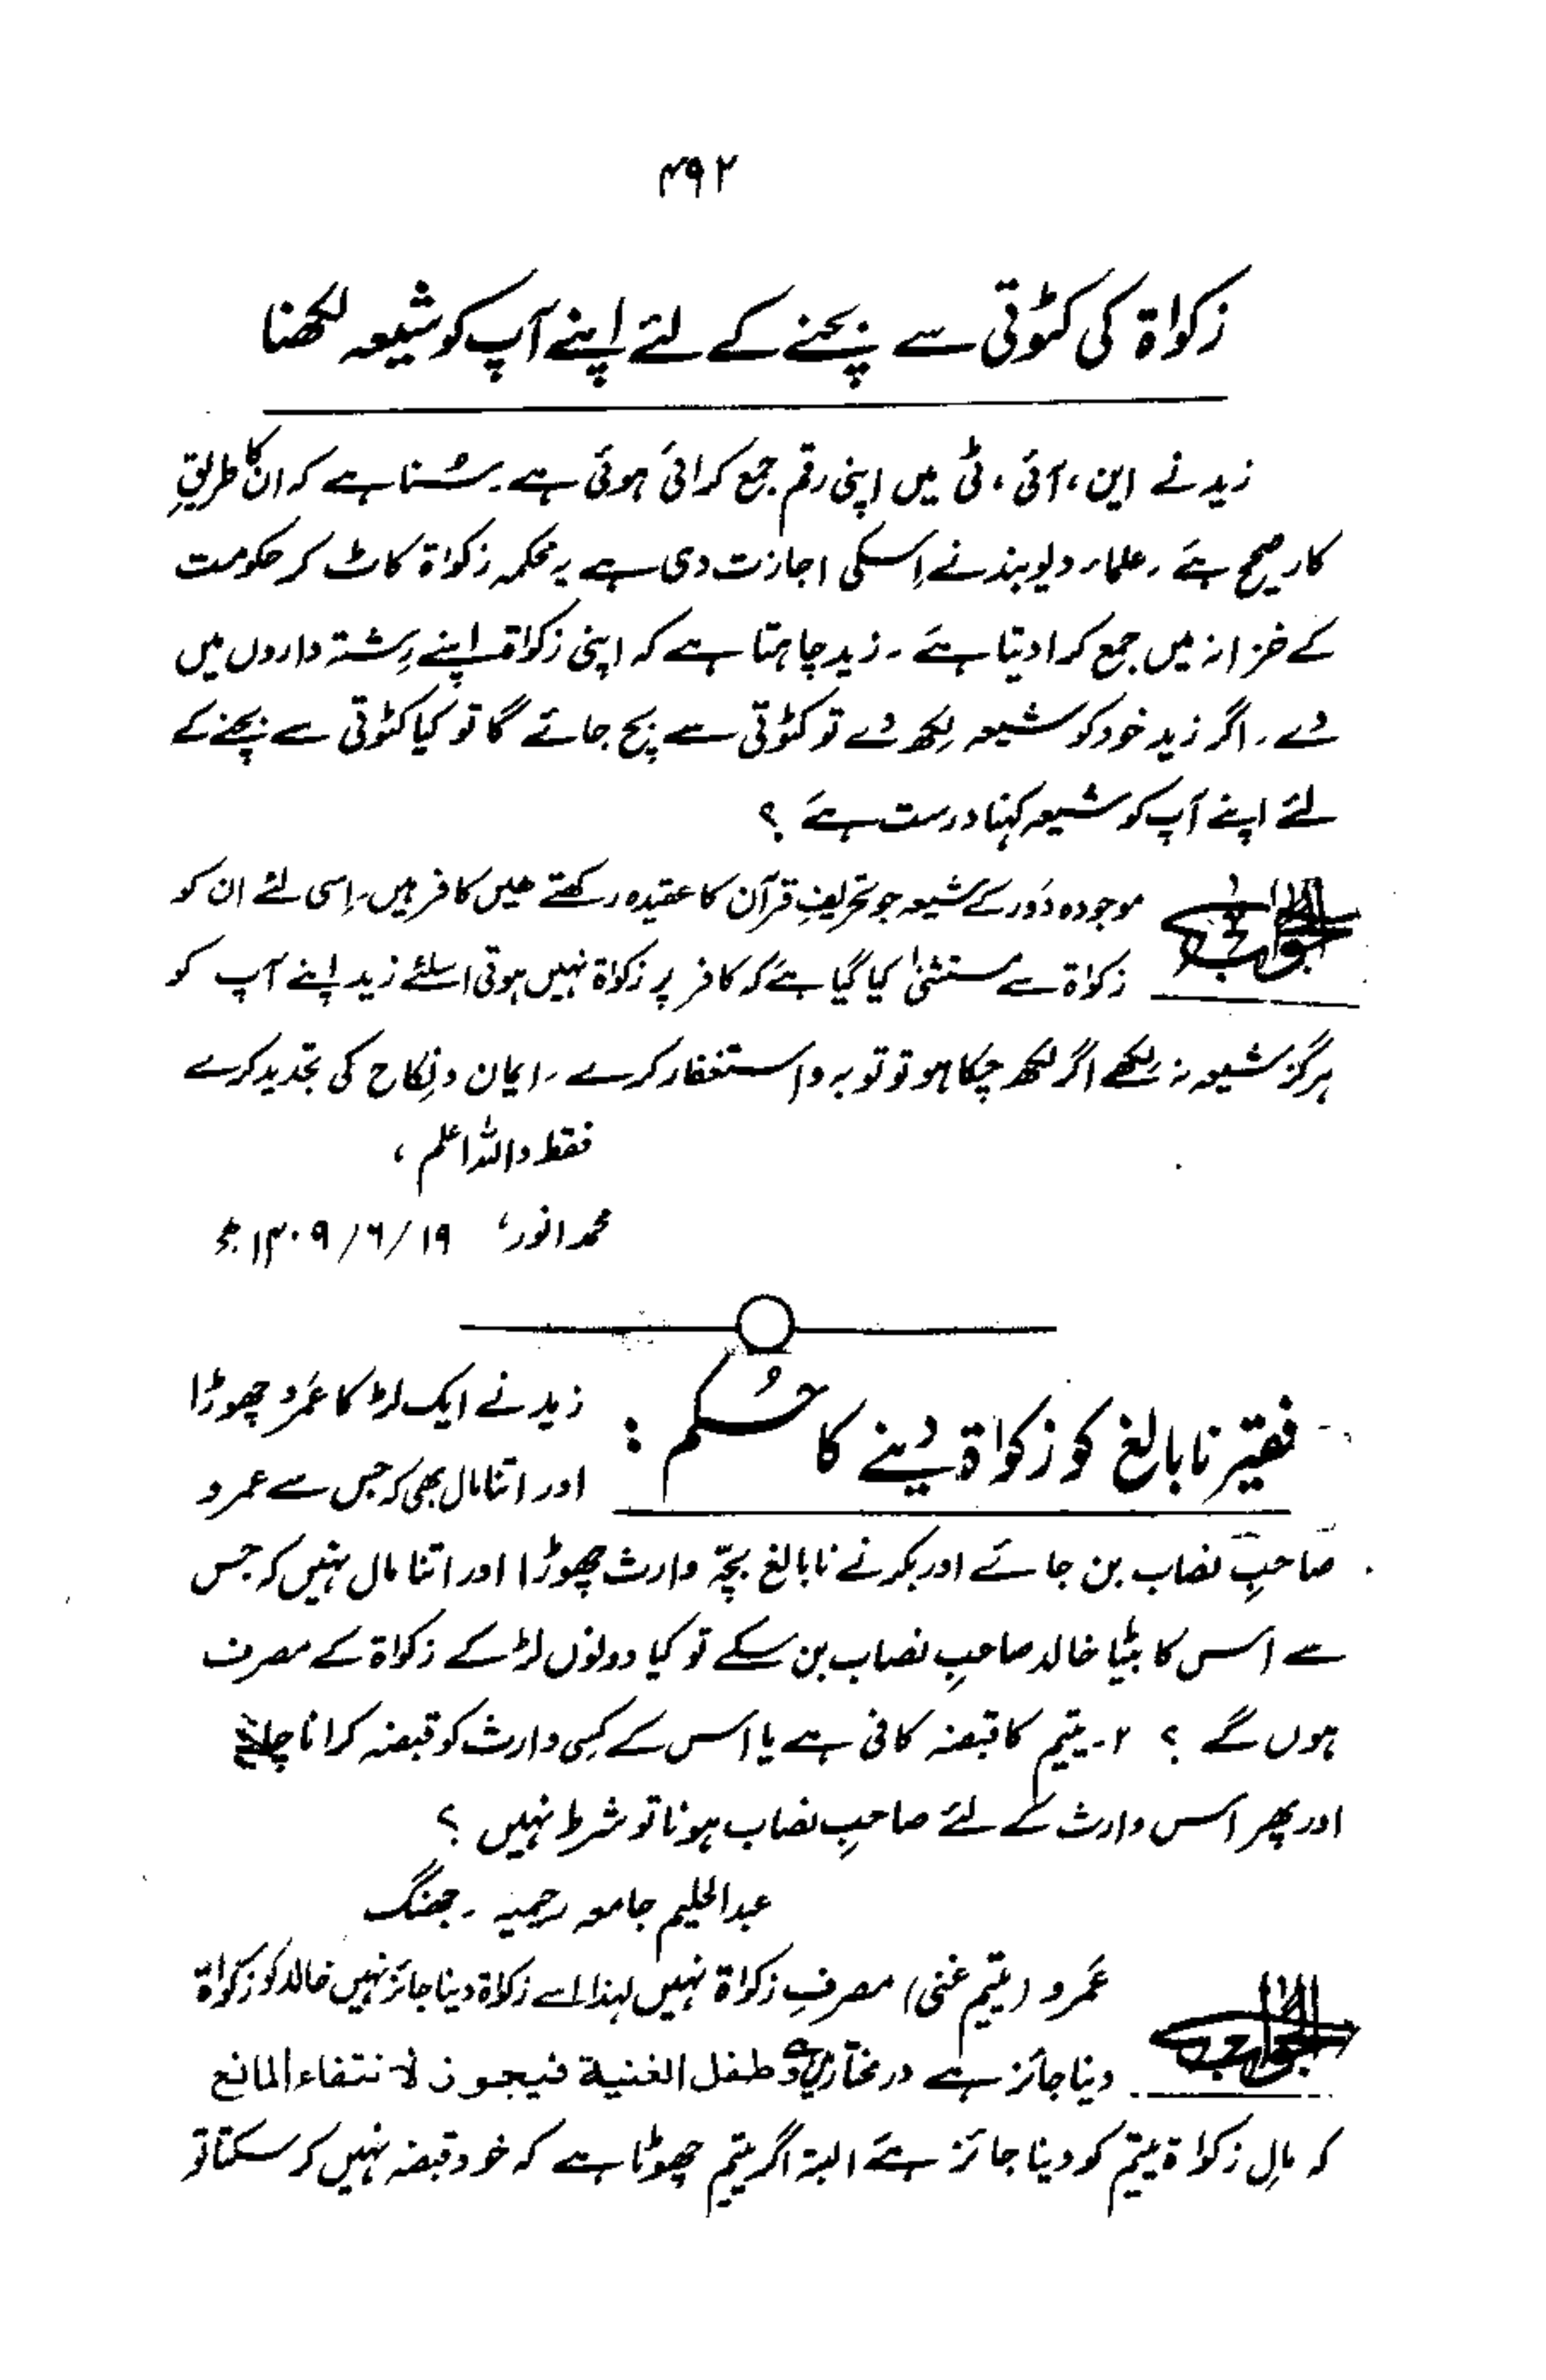 ۴۹۲
زکواۃ کی کٹوتی سے بچنے کے لئے اپنے آپ کو شیعہ لکھنا
زید نے این، آئی، ٹی میں اپنی رقم جمع کرائی ہوئی ہے۔ سُنا ہے کہ ان کا طریقِ
کار صحیح ہے۔ علماء دیوبند نے اِسکی اجازت دی ہے یہ محکمہ زکواۃ کاٹ کر حکومت
کے خزانہ میں جمع کرا دیتا ہے۔ زید چاہتا ہے کہ اپنی زکواۃ اپنے رِشتہ داروں میں
دے۔ اگر زید خود کو شیعہ لِکھ دے تو کٹوتی سے بچ جائے گا تو کیا کٹوتی سے بچنے کے
لئے اپنے آپ کو شیعہ کہنا درست ہے ؟
الجواب موجودہ دَور کے شیعہ جو تحریفِ قرآن کا عقیدہ رکھتے ھیں کافر ہیں۔ اِسی لئے ان کو
زکواۃ سے مستثنیٰ کیا گیا ہے کہ کافر پر زکواۃ نہیں ہوتی اسلئے زید اپنے آپ کو
ہرگز شیعہ نہ لِکھے اگر لکھ چکا ہو تو توبہ و استغفار کرے۔ ایمان و نِکاح کی تجدید کرے
فقط واللہ اعلم ،
محمد انور، ۱۹/۶/۱۴۰۹ھ
فقیر نابالغ کو زکواۃ دینے کا حُکم : زید نے ایک لڑکا عَمرو چھوڑا
اور اتنا مال بھی کہ جس سے عمرو
صاحبِ نصاب بن جائے اور بکر نے نابالغ بچّہ وارث چھوڑا اور اتنا مال نہیں کہ جس
سے اس کا بیٹا خالد صاحبِ نصاب بن سکے تو کیا دونوں لڑکے زکواۃ کے مصرف
ہوں گے ؟ ۲۔ یتیم کا قبضہ کافی ہے یا اس کے کِسی وارث کو قبضہ کرانا چاہیئے
اور پھر اس وارث کے لئے صاحبِ نصاب ہونا تو شرط نہیں ؟
عبدالحلیم جامعہ رحیمیہ۔ جھنگ
الجواب عَمرو (یتیم غنی) مصرفِ زکواۃ نہیں لہٰذا اسے زکواۃ دینا جائز نہیں خالد کو زکواۃ
دینا جائز ہے در مختار میں ہے و طفل الغنیة فیجوز لانتفاء المانع
کہ مالِ زکواۃ یتیم کو دینا جائز ہے البتہ اگر یتیم چھوٹا ہے کہ خود قبضہ نہیں کر سکتا تو